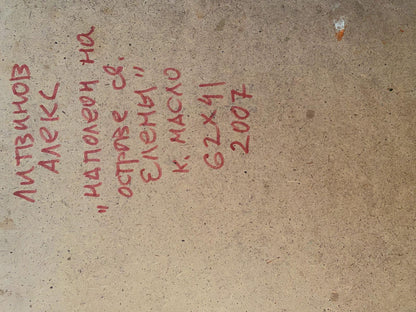 ЛИТВИНОВ
АЛЕКС
"НАПОЛЕОН НА
ОСТРОВЕ СВ.
ЕЛЕНЫ"
К. МАСЛО
62Х41
2007